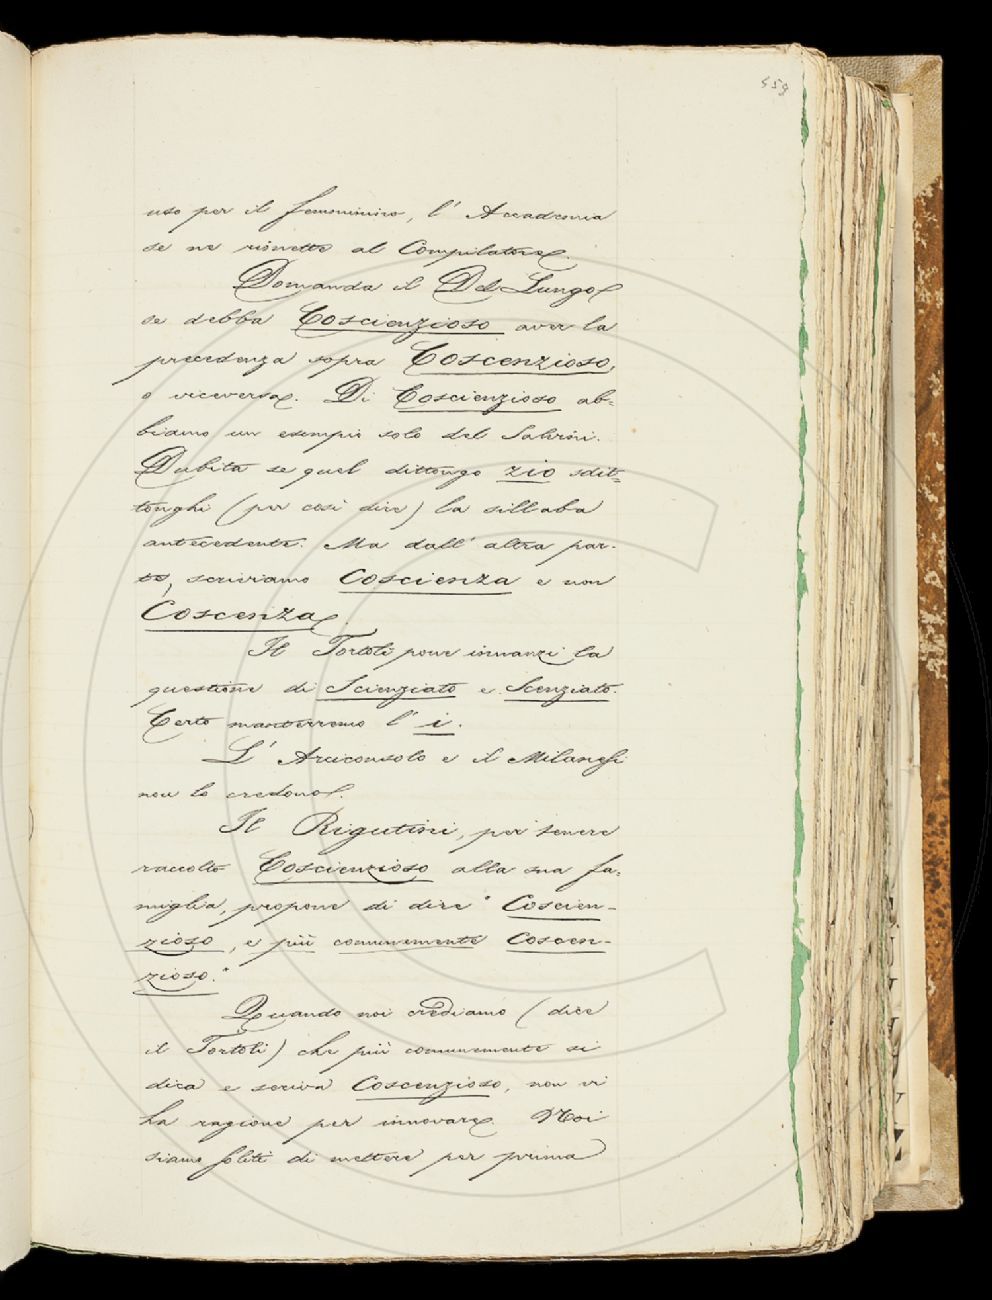 459
uso per il femminino, l'Accademia
se ne rimette al Compilatore.
Domanda il Del Lungo
se debba Coscienzioso aver la
precedenza sopra Coscenzioso,
o viceversa. Di Coscienzioso ab-
biamo un esempio solo del Salvini.
Dubita se quel dittongo zio sdit-
tonghi (per così dire) la sillaba
antecedente. Ma dall'altra par-
te, scriviamo Coscienza e non
Coscenza.
Il Tortoli pone innanzi la
questione di Scienziato e Scenziato.
Certo manterremo l'i.
L'Arciconsolo e il Milanesi
non lo credono.
Il Rigutini, per tenere
raccolto Coscienzioso alla sua fa-
miglia, propone di dire "Coscien-
zioso, e più comunemente Coscen-
zioso."
Quando noi crediamo (dice
il Tortoli) che più comunemente si
dica e scriva Coscenzioso, non vi
ha ragione per innovare. Noi
siamo soliti di mettere per prima